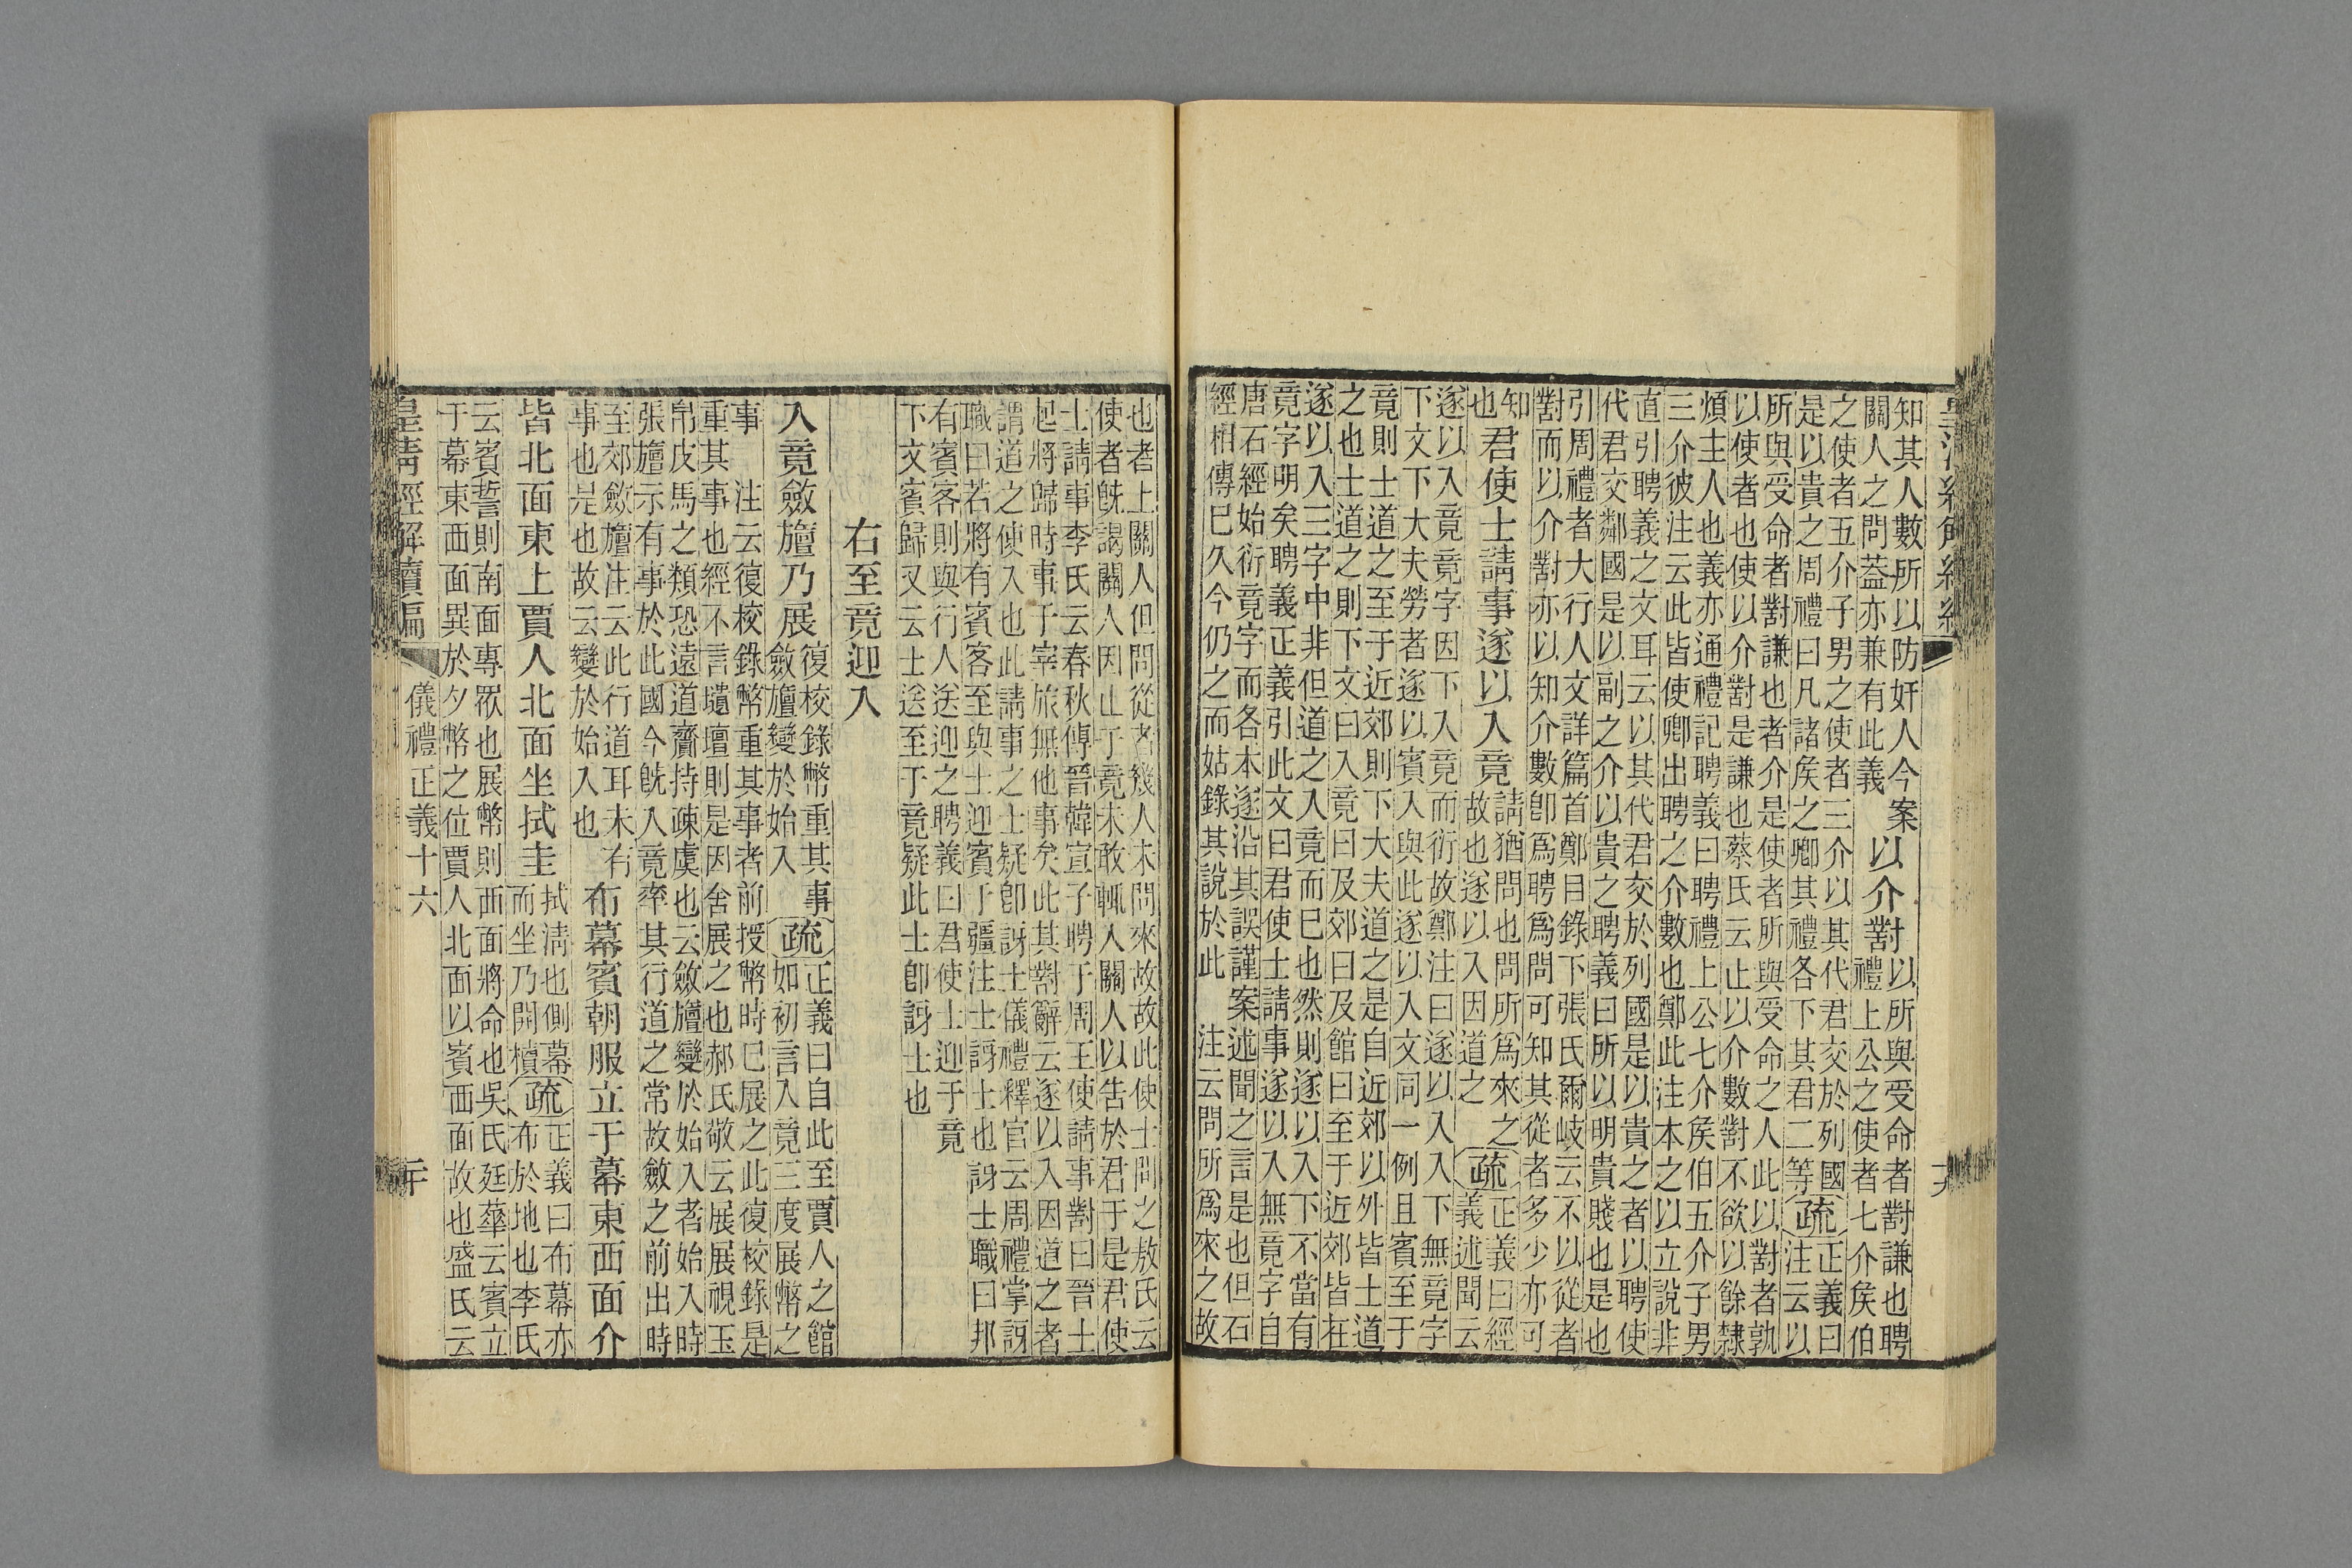 知其人數所以防奸人今案
關人之問葢亦兼有此義
以介對
以所與受命者對謙也聘
禮上公之使者七介矦伯
之使者五介子男之使者三介以其代君交於列國
是以貴之周禮曰凡諸矦之卿其禮各下其君二等
疏
正義曰
注云以
所與受命者對謙也者介是使者所與受命之人此以對者孰
以使者也使以介對是謙也蔡氏云止以介數對不欲以餘隸
煩主人也義亦通禮記聘義曰聘禮上公七介矦伯五介子男
三介彼注云此皆使卿出聘之介數也鄭此注本之以立說非
直引聘義之文耳云以其代君交於列國是以貴之者以聘使
代君交鄰國是以副之介以貴之聘義曰所以明貴賤也是也
引周禮者大行人文詳篇首鄭目錄下張氏爾岐云不以從者
對而以介對亦以知介數卽爲聘爲問可知其從者多少亦可
知
也
君使士請事遂以入竟
請猶問也問所爲來之
故也遂以入因道之
疏
正義曰經
義述聞云
遂以入竟竟字因下入竟而衍故鄭注曰遂以入入下無竟字
下文下大夫勞者遂以賓入與此遂以入文同一例且賓至于
竟則士道之至于近郊則下大夫道之是自近郊以外皆士道
之也士道之則下文曰入竟曰及郊曰及館曰至于近郊皆在
遂以入三字中非但道之入竟而已也然則遂以入下不當有
竟字明矣聘義正義引此文曰君使士請事遂以入無竟字自
唐石經始衍竟字而各本遂沿其誤謹案述聞之言是也但石
經相傳已久今仍之而姑錄其說於此 注云問所爲來之故
也者上關人但問從者幾人未問來故故此使士問之敖氏云
使者旣謁關人因止于竟未敢輒入關人以告於君于是君使
士請事李氏云春秋傳晉韓宣子聘于周王使請事對曰晉士
起將歸時事于宰旅無他事矣此其對辭云遂以入因道之者
謂道之使入也此請事之士疑卽訝士儀禮釋官云周禮掌訝
職曰若將有賓客至與士迎賓于疆注士訝士也訝士職曰邦
有賓客則與行人送迎之聘義曰君使士迎于竟
下文賓歸又云士送至于竟疑此士卽訝士也
右至竟迎入
入竟斂旜乃展
復校錄幣重其事
斂旜變於始入
疏
正義曰自此至賈人之館
如初言入竟三度展幣之
事 注云復校錄幣重其事者前授幣時已展之此復校錄是
重其事也經不言壝壇則是因舍展之也郝氏敬云展展視玉
帛皮馬之類恐遠道齎持疎虞也云斂旜變於始入者始入時
張旜示有事於此國今旣入竟率其行道之常故斂之前出時
至郊斂旜注云此行道耳未有
事也是也故云變於始入也
布幕賓朝服立于幕東西面介
皆北面東上賈人北面坐拭圭
拭淸也側幕
而坐乃開櫝
疏
正義曰布幕亦
布於地也李氏
云賓誓則南面專眾也展幣則西面將命也吳氏廷華云賓立
于幕東西面異於夕幣之位賈人北面以賓西面故也盛氏云
皇淸經解續編
儀禮正義十六